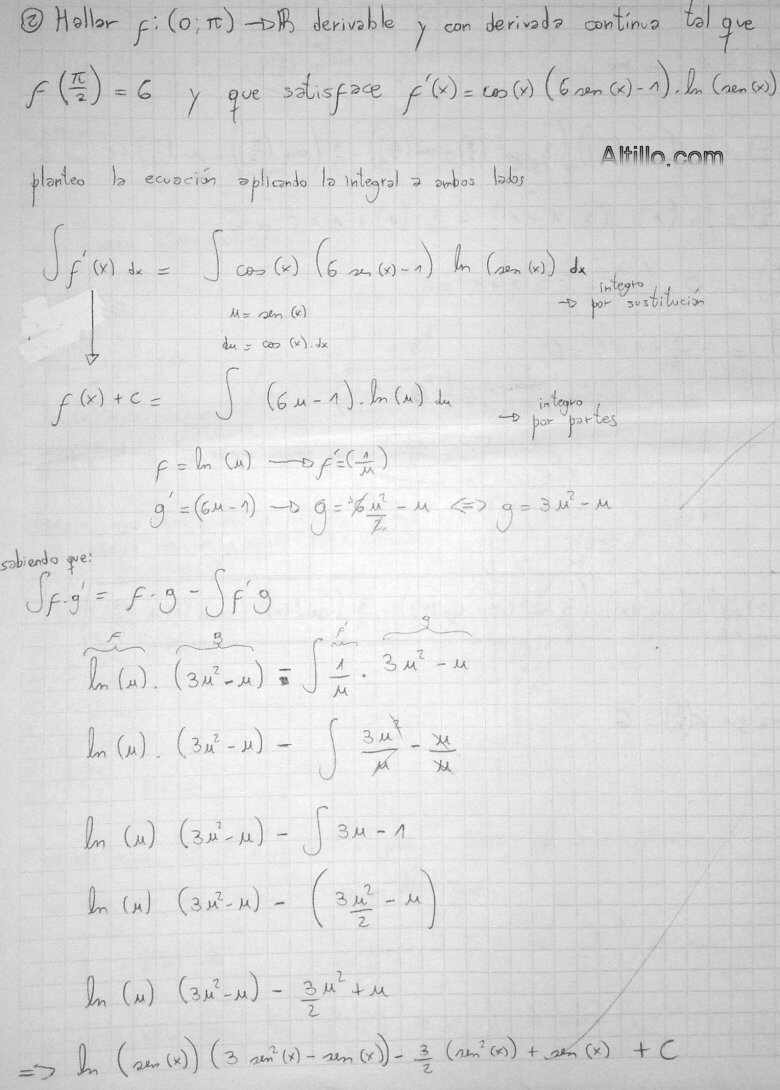 ② Hallar f: (0; π) → ℝ derivable y con derivada continua tal que
f (π/2) = 6 y que satisface f'(x) = cos(x) (6 sen(x) - 1) . ln (sen(x))
Altillo.com
planteo la ecuación aplicando la integral a ambos lados
∫ f'(x) dx = ∫ cos(x) (6 sen(x) - 1) ln (sen(x)) dx → integro por sustitución
u = sen(x)
du = cos(x).dx
f(x) + c = ∫ (6u - 1). ln(u) du → integro por partes
f = ln (u) → f' = (1/u)
g' = (6u - 1) → g = ³6 u²/2 - u <=> g = 3u² - u
sabiendo que:
∫ f.g' = f.g - ∫ f'g
f g f' g
ln(u). (3u² - u) - ∫ 1/u . 3u² - u
ln(u). (3u² - u) - ∫ 3u²/u - u/u
ln (u) (3u² - u) - ∫ 3u - 1
ln (u) (3u² - u) - (3u²/2 - u)
ln (u) (3u² - u) - 3/2 u² + u
=> ln (sen(x)) (3 sen²(x) - sen(x)) - 3/2 (sen²(x)) + sen(x) + C